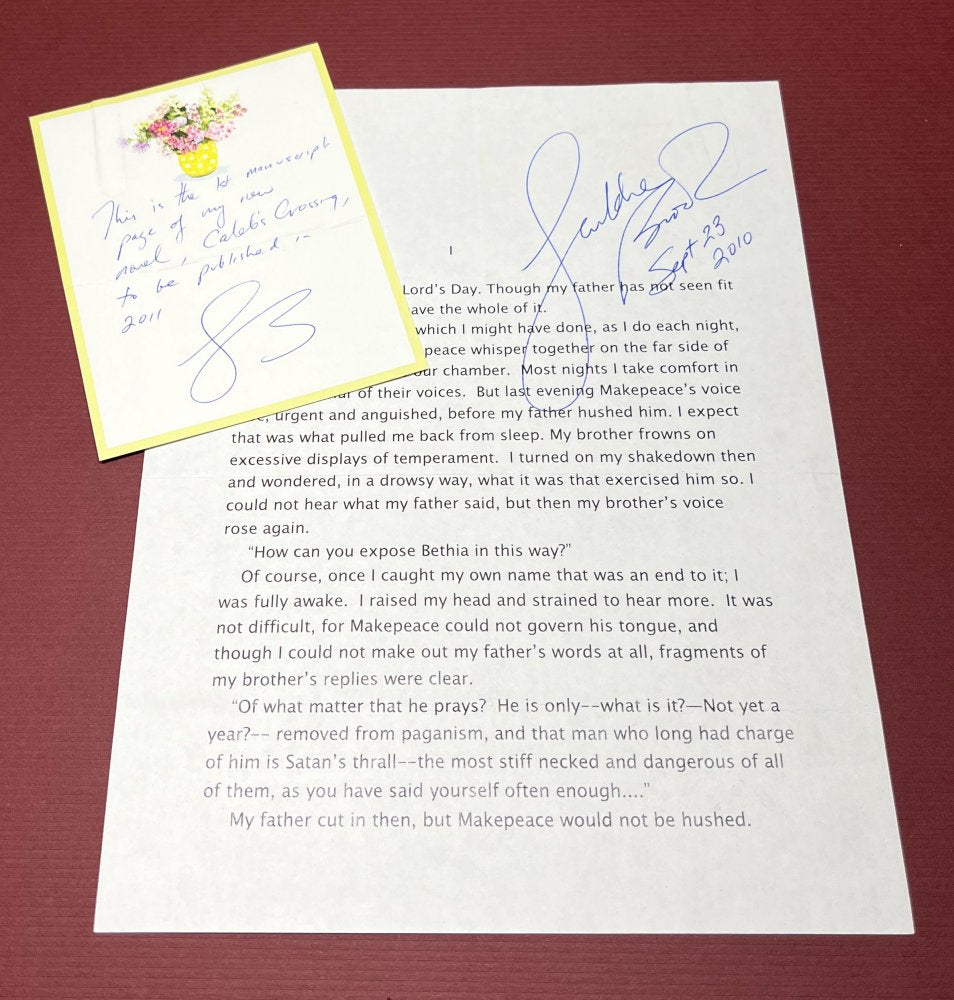 This is the 1st manuscript
page of my new
novel, Caleb's Crossing,
to be published in
2011
GB
Geraldine Brooks
Sept 23
2010
I
Lord's Day. Though my father has not seen fit
ave the whole of it.
which I might have done, as I do each night,
peace whisper together on the far side of
our chamber. Most nights I take comfort in
of their voices. But last evening Makepeace's voice
urgent and anguished, before my father hushed him. I expect
that was what pulled me back from sleep. My brother frowns on
excessive displays of temperament. I turned on my shakedown then
and wondered, in a drowsy way, what it was that exercised him so. I
could not hear what my father said, but then my brother's voice
rose again.
“How can you expose Bethia in this way?”
Of course, once I caught my own name that was an end to it; I
was fully awake. I raised my head and strained to hear more. It was
not difficult, for Makepeace could not govern his tongue, and
though I could not make out my father's words at all, fragments of
my brother's replies were clear.
“Of what matter that he prays? He is only--what is it?—Not yet a
year?-- removed from paganism, and that man who long had charge
of him is Satan's thrall--the most stiff necked and dangerous of all
of them, as you have said yourself often enough....”
My father cut in then, but Makepeace would not be hushed.